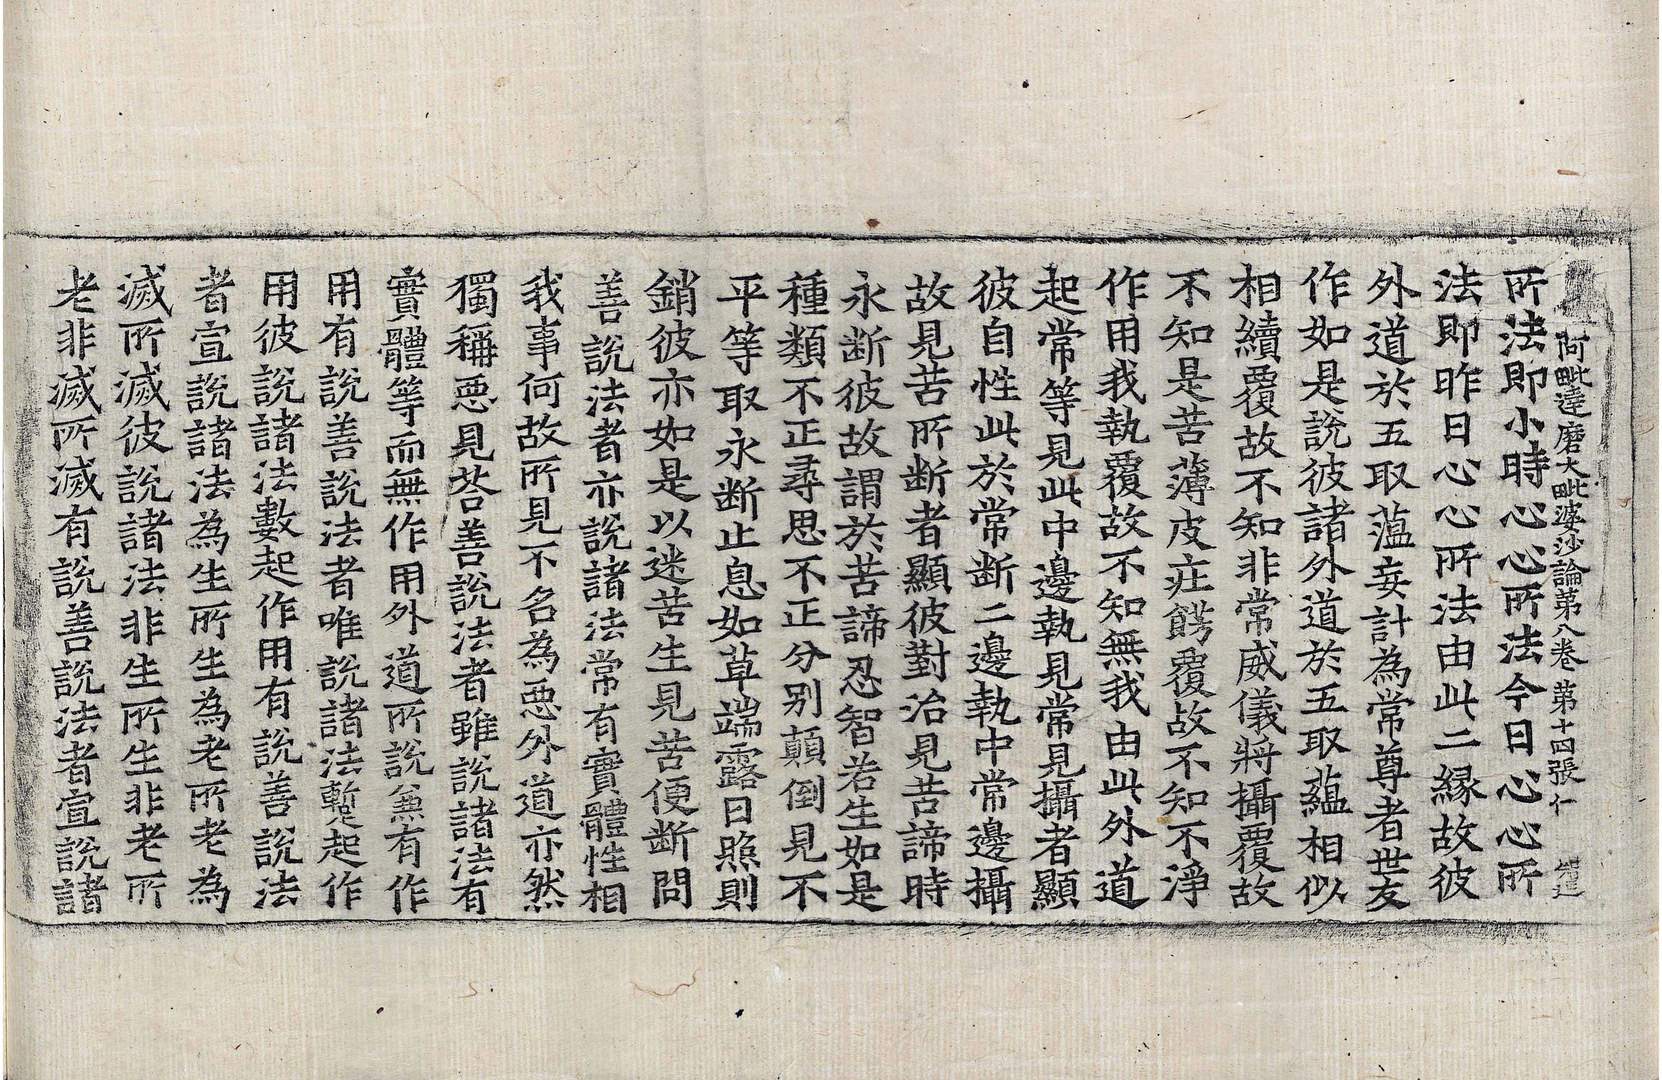 阿毗達磨大毗婆沙論第八卷 第十四張 仁
所法即小時心心所法今日心心所
法即昨日心心所法由此二緣故彼
外道於五取薀妄計為常尊者世友
作如是說彼諸外道於五取蘊相似
相續覆故不知非常威儀將攝覆故
不知是苦薄皮疘餝覆故不知不淨
作用我執覆故不知無我由此外道
起常等見此中邊執見常見攝者顯
彼自性此於常断二邊執中常邊攝
故見苦所断者顯彼對治見苦諦時
永断彼故謂於苦諦忍智若生如是
種類不正尋思不正分別顛倒見不
平等取永断止息如草端露日照則
銷彼亦如是以迷苦生見苦便断問
善說法者亦說諸法常有實體性相
我事何故所見不名為悪外道亦然
獨稱悪見荅善說法者雖說諸法有
實體等而無作用外道所說兼有作
用有說善說法者唯說諸法蹔起作
用彼說諸法數起作用有說善說法
者宣說諸法為生所生為老所老為
滅所滅彼說諸法非生所生非老所
老非滅所滅有說善說法者宣說諸